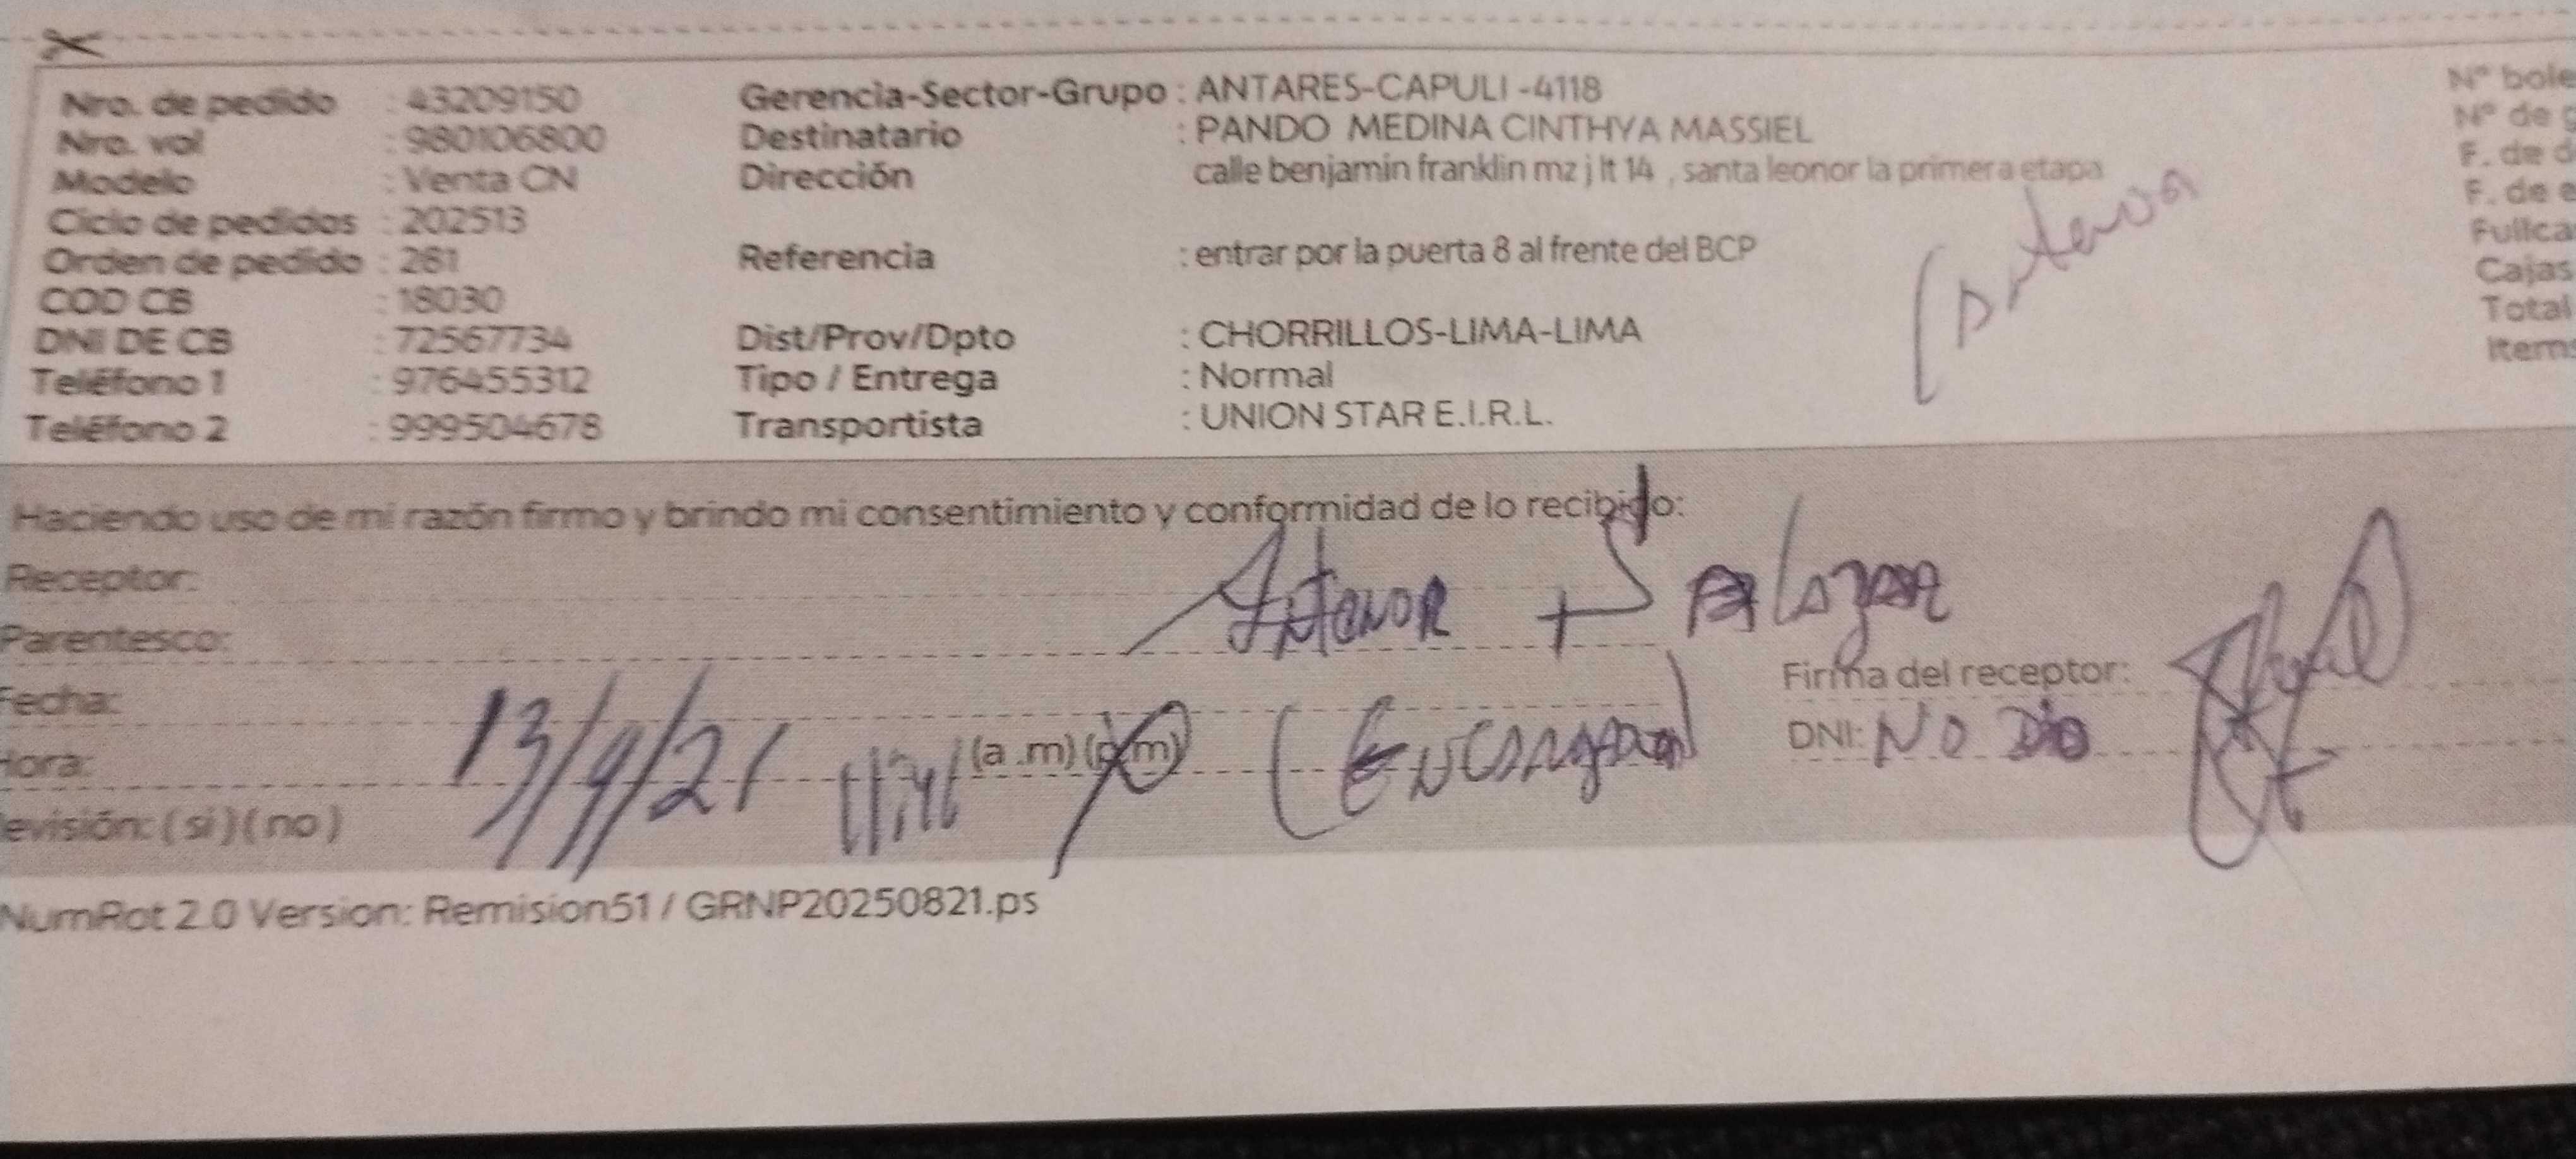 Nro. de pedido : 43209150
Nro. vol : 980106800
Modelo : Venta CN
Ciclo de pedidos : 202513
Orden de pedido : 261
COD CB : 18030
DNI DE CB : 72567734
Teléfono 1 : 976455312
Teléfono 2 : 999504678
Gerencia-Sector-Grupo : ANTARES-CAPULI -4118
Destinatario : PANDO MEDINA CINTHYA MASSIEL
Dirección calle benjamin franklin mz j lt 14 , santa leonor la primera etapa
Referencia : entrar por la puerta 8 al frente del BCP
Dist/Prov/Dpto : CHORRILLOS-LIMA-LIMA
Tipo / Entrega : Normal
Transportista : UNION STAR E.I.R.L.
N° bole
N° de
F. de d
F. de e
Fullca
Cajas
Total
Items
Haciendo uso de mi razón firmo y brindo mi consentimiento y conformidad de lo recibido:
Receptor: Antenor + Salazar
Parentesco:
Fecha: 13/9/21
Hora: 11:41 (a .m) (p.m)
evisión: ( si ) ( no )
Firma del receptor:
DNI: NO DIO
NumRot 2.0 Version: Remision51 / GRNP20250821.ps